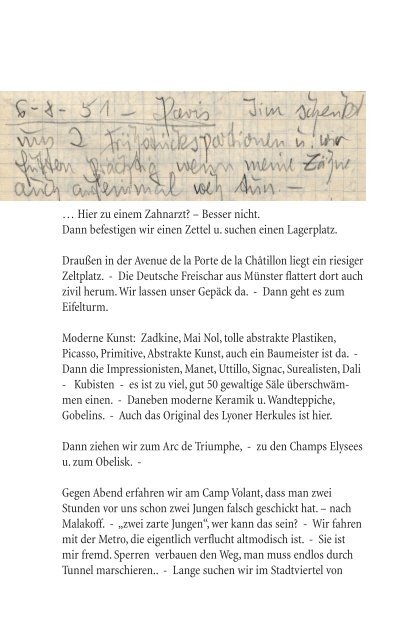 6-8-51 – Paris Jim schenkt
uns 2 Frühstücksportionen u. wir
futtern prächtig wenn meine Zähne
auch auf einmal weh tun. –
… Hier zu einem Zahnarzt? – Besser nicht.
Dann befestigen wir einen Zettel u. suchen einen Lagerplatz.
Draußen in der Avenue de la Porte de la Châtillon liegt ein riesiger
Zeltplatz. - Die Deutsche Freischar aus Münster flattert dort auch
zivil herum. Wir lassen unser Gepäck da. - Dann geht es zum
Eifelturm.
Moderne Kunst: Zadkine, Mai Nol, tolle abstrakte Plastiken,
Picasso, Primitive, Abstrakte Kunst, auch ein Baumeister ist da. -
Dann die Impressionisten, Manet, Uttillo, Signac, Surealisten, Dali
- Kubisten - es ist zu viel, gut 50 gewaltige Säle überschwäm-
men einen. - Daneben moderne Keramik u. Wandteppiche,
Gobelins. - Auch das Original des Lyoner Herkules ist hier.
Dann ziehen wir zum Arc de Triumphe, - zu den Champs Elysees
u. zum Obelisk. -
Gegen Abend erfahren wir am Camp Volant, dass man zwei
Stunden vor uns schon zwei Jungen falsch geschickt hat. – nach
Malakoff. - „zwei zarte Jungen“, wer kann das sein? - Wir fahren
mit der Metro, die eigentlich verflucht altmodisch ist. - Sie ist
mir fremd. Sperren verbauen den Weg, man muss endlos durch
Tunnel marschieren.. - Lange suchen wir im Stadtviertel von